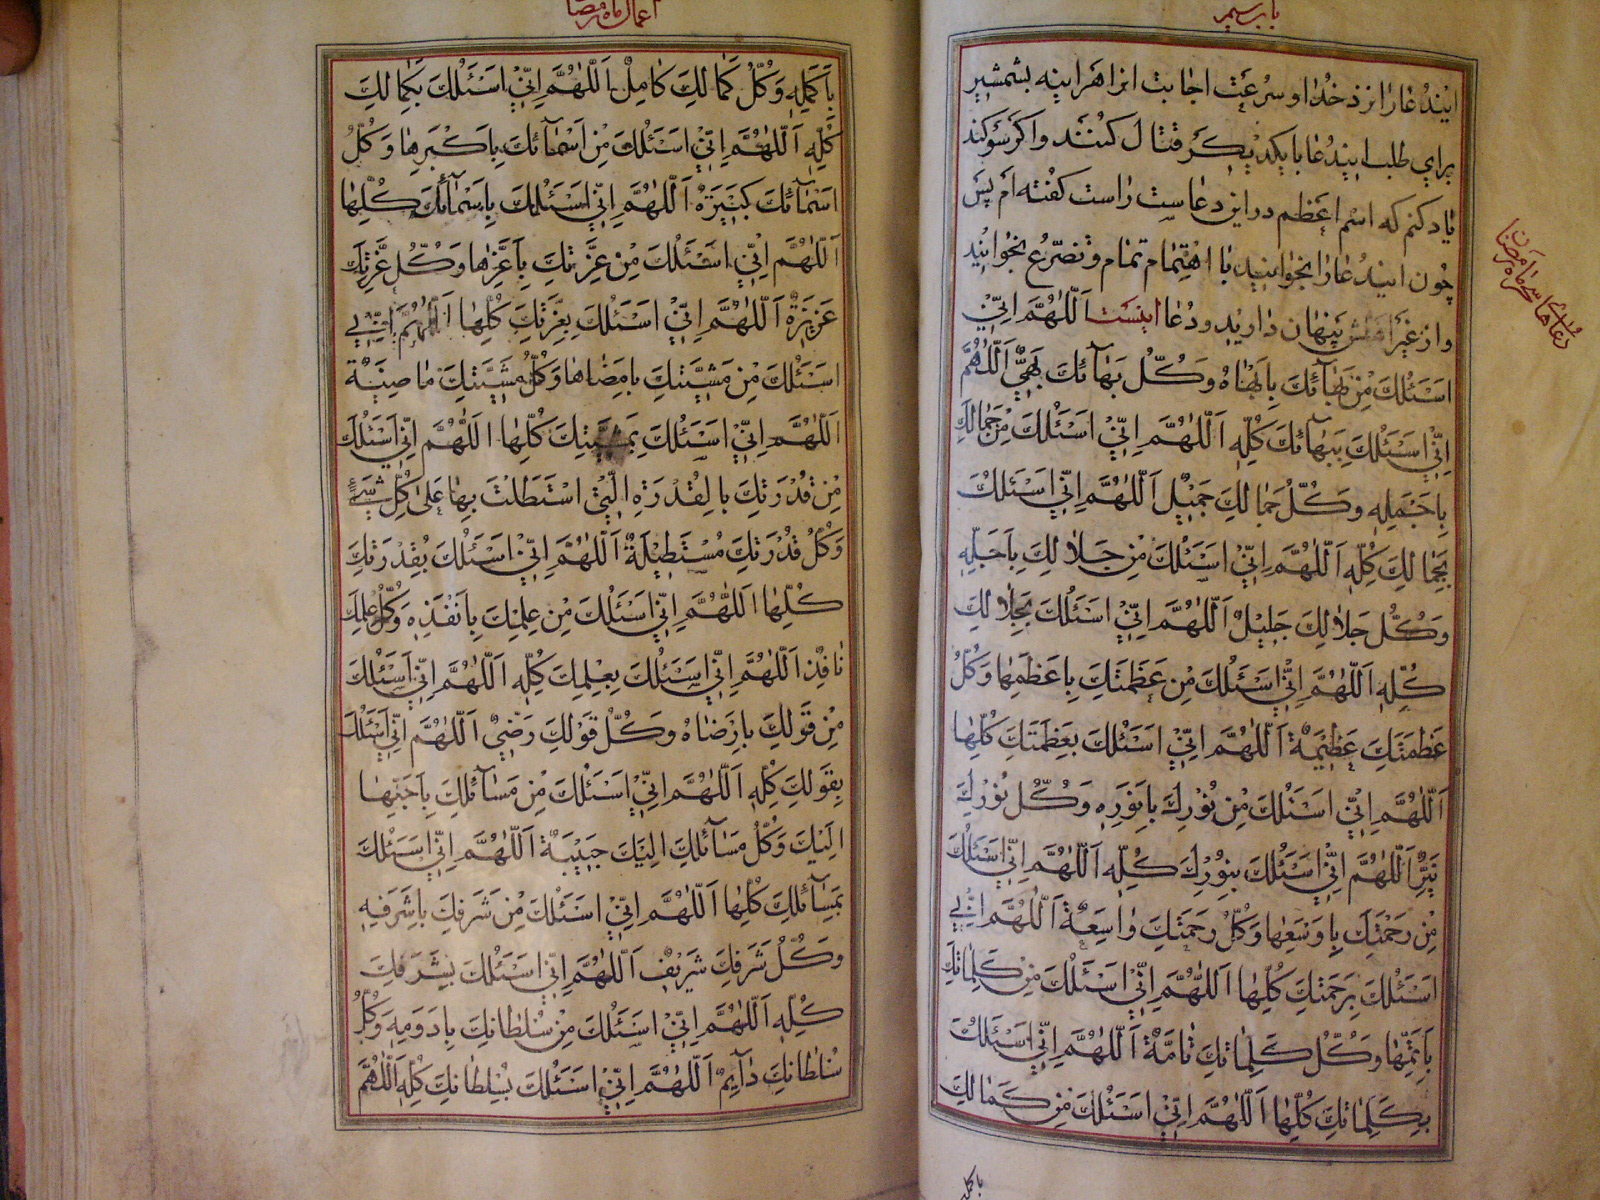 باب سیم
این دعا را نزد خدا و سرعت اجابت انرا هر اینه بشمشیر
برای طلب این دعا با یکدیکر قتال کنند و اکر سوکند
یاد کنم که اسم اعظم در این دعاست راست کفته ام پس
چون این دعا را بخوانید با اهتمام تمام و تضرع بخوانید
و از غیر اهلش پنهان دارید و دعا اینست اَللّٰهُمَّ اِنّی
اَسْئَلُكَ مِنْ بَهآئِكَ بِاَبْهاهُ وَكُلُّ بَهآئِكَ بَهِیٌّ اَللّٰهُمَّ
اِنّی اَسْئَلُكَ بِبَهآئِكَ كُلِّهِ اَللّٰهُمَّ اِنّی اَسْئَلُكَ مِنْ جَمالِكَ
بِاَجْمَلِهِ وَكُلُّ جَمالِكَ جَمیلٌ اَللّٰهُمَّ اِنّی اَسْئَلُكَ
بِجَمالِكَ كُلِّهِ اَللّٰهُمَّ اِنّی اَسْئَلُكَ مِنْ جَلالِكَ بِاَجَلِّهِ
وَكُلُّ جَلالِكَ جَلیلٌ اَللّٰهُمَّ اِنّی اَسْئَلُكَ بِجَلالِكَ
كُلِّهِ اَللّٰهُمَّ اِنّی اَسْئَلُكَ مِنْ عَظَمَتِكَ بِاَعْظَمِها وَكُلُّ
عَظَمَتِكَ عَظیمَةٌ اَللّٰهُمَّ اِنّی اَسْئَلُكَ بِعَظَمَتِكَ كُلِّها
اَللّٰهُمَّ اِنّی اَسْئَلُكَ مِنْ نُورِكَ بِاَنْوَرِهِ وَكُلُّ نُورِكَ
نَیِّرٌ اَللّٰهُمَّ اِنّی اَسْئَلُكَ بِنُورِكَ كُلِّهِ اَللّٰهُمَّ اِنّی اَسْئَلُكَ
مِنْ رَحْمَتِكَ بِاَوْسَعِها وَكُلُّ رَحْمَتِكَ واسِعَةٌ اَللّٰهُمَّ اِنّی
اَسْئَلُكَ بِرَحْمَتِكَ كُلِّها اَللّٰهُمَّ اِنّی اَسْئَلُكَ مِنْ كَلِماتِكَ
بِاَتَمِّها وَكُلُّ كَلِماتِكَ تامَّةٌ اَللّٰهُمَّ اِنّی اَسْئَلُكَ
بِكَلِماتِكَ كُلِّها اَللّٰهُمَّ اِنّی اَسْئَلُكَ مِنْ كَمالِكَ
باكمله
اعمال ماه رمضا
بِاَكْمَلِهِ وَكُلُّ كَمالِكَ كامِلٌ اَللّٰهُمَّ اِنّی اَسْئَلُكَ بِكَمالِكَ
كُلِّهِ اَللّٰهُمَّ اِنّی اَسْئَلُكَ مِنْ اَسْمآئِكَ بِاَكْبَرِها وَكُلُّ
اَسْمآئِكَ كَبیرَةٌ اَللّٰهُمَّ اِنّی اَسْئَلُكَ بِاَسْمآئِكَ كُلِّها
اَللّٰهُمَّ اِنّی اَسْئَلُكَ مِنْ عِزَّتِكَ بِاَعَزِّها وَكُلُّ عِزَّتِكَ
عَزیزَةٌ اَللّٰهُمَّ اِنّی اَسْئَلُكَ بِعِزَّتِكَ كُلِّها اَللّٰهُمَّ اِنّی
اَسْئَلُكَ مِنْ مَشِیَّتِكَ بِاَمْضاها وَكُلُّ مَشِیَّتِكَ ماضِیَةٌ
اَللّٰهُمَّ اِنّی اَسْئَلُكَ بِمَشِیَّتِكَ كُلِّها اَللّٰهُمَّ اِنّی اَسْئَلُكَ
مِنْ قُدْرَتِكَ بِالْقُدْرَةِ الَّتی اسْتَطَلْتَ بِها عَلیٰ كُلِّ شَیْءٍ
وَكُلُّ قُدْرَتِكَ مُسْتَطیلَةٌ اَللّٰهُمَّ اِنّی اَسْئَلُكَ بِقُدْرَتِكَ
كُلِّها اَللّٰهُمَّ اِنّی اَسْئَلُكَ مِنْ عِلْمِكَ بِاَنْفَذِهِ وَكُلُّ عِلْمِكَ
نافِذٌ اَللّٰهُمَّ اِنّی اَسْئَلُكَ بِعِلْمِكَ كُلِّهِ اَللّٰهُمَّ اِنّی اَسْئَلُكَ
مِنْ قَوْلِكَ بِاَرْضاهُ وَكُلُّ قَوْلِكَ رَضِیٌّ اَللّٰهُمَّ اِنّی اَسْئَلُكَ
بِقَوْلِكَ كُلِّهِ اَللّٰهُمَّ اِنّی اَسْئَلُكَ مِنْ مَسآئِلِكَ بِاَحَبِّها
اِلَیْكَ وَكُلُّ مَسآئِلِكَ اِلَیْكَ حَبیبَةٌ اَللّٰهُمَّ اِنّی اَسْئَلُكَ
بِمَسآئِلِكَ كُلِّها اَللّٰهُمَّ اِنّی اَسْئَلُكَ مِنْ شَرَفِكَ بِاَشْرَفِهِ
وَكُلُّ شَرَفِكَ شَریفٌ اَللّٰهُمَّ اِنّی اَسْئَلُكَ بِشَرَفِكَ
كُلِّهِ اَللّٰهُمَّ اِنّی اَسْئَلُكَ مِنْ سُلْطانِكَ بِاَدْوَمِهِ وَكُلُّ
سُلْطانِكَ دآئِمٌ اَللّٰهُمَّ اِنّی اَسْئَلُكَ بِسُلْطانِكَ كُلِّهِ اَللّٰهُمَّ